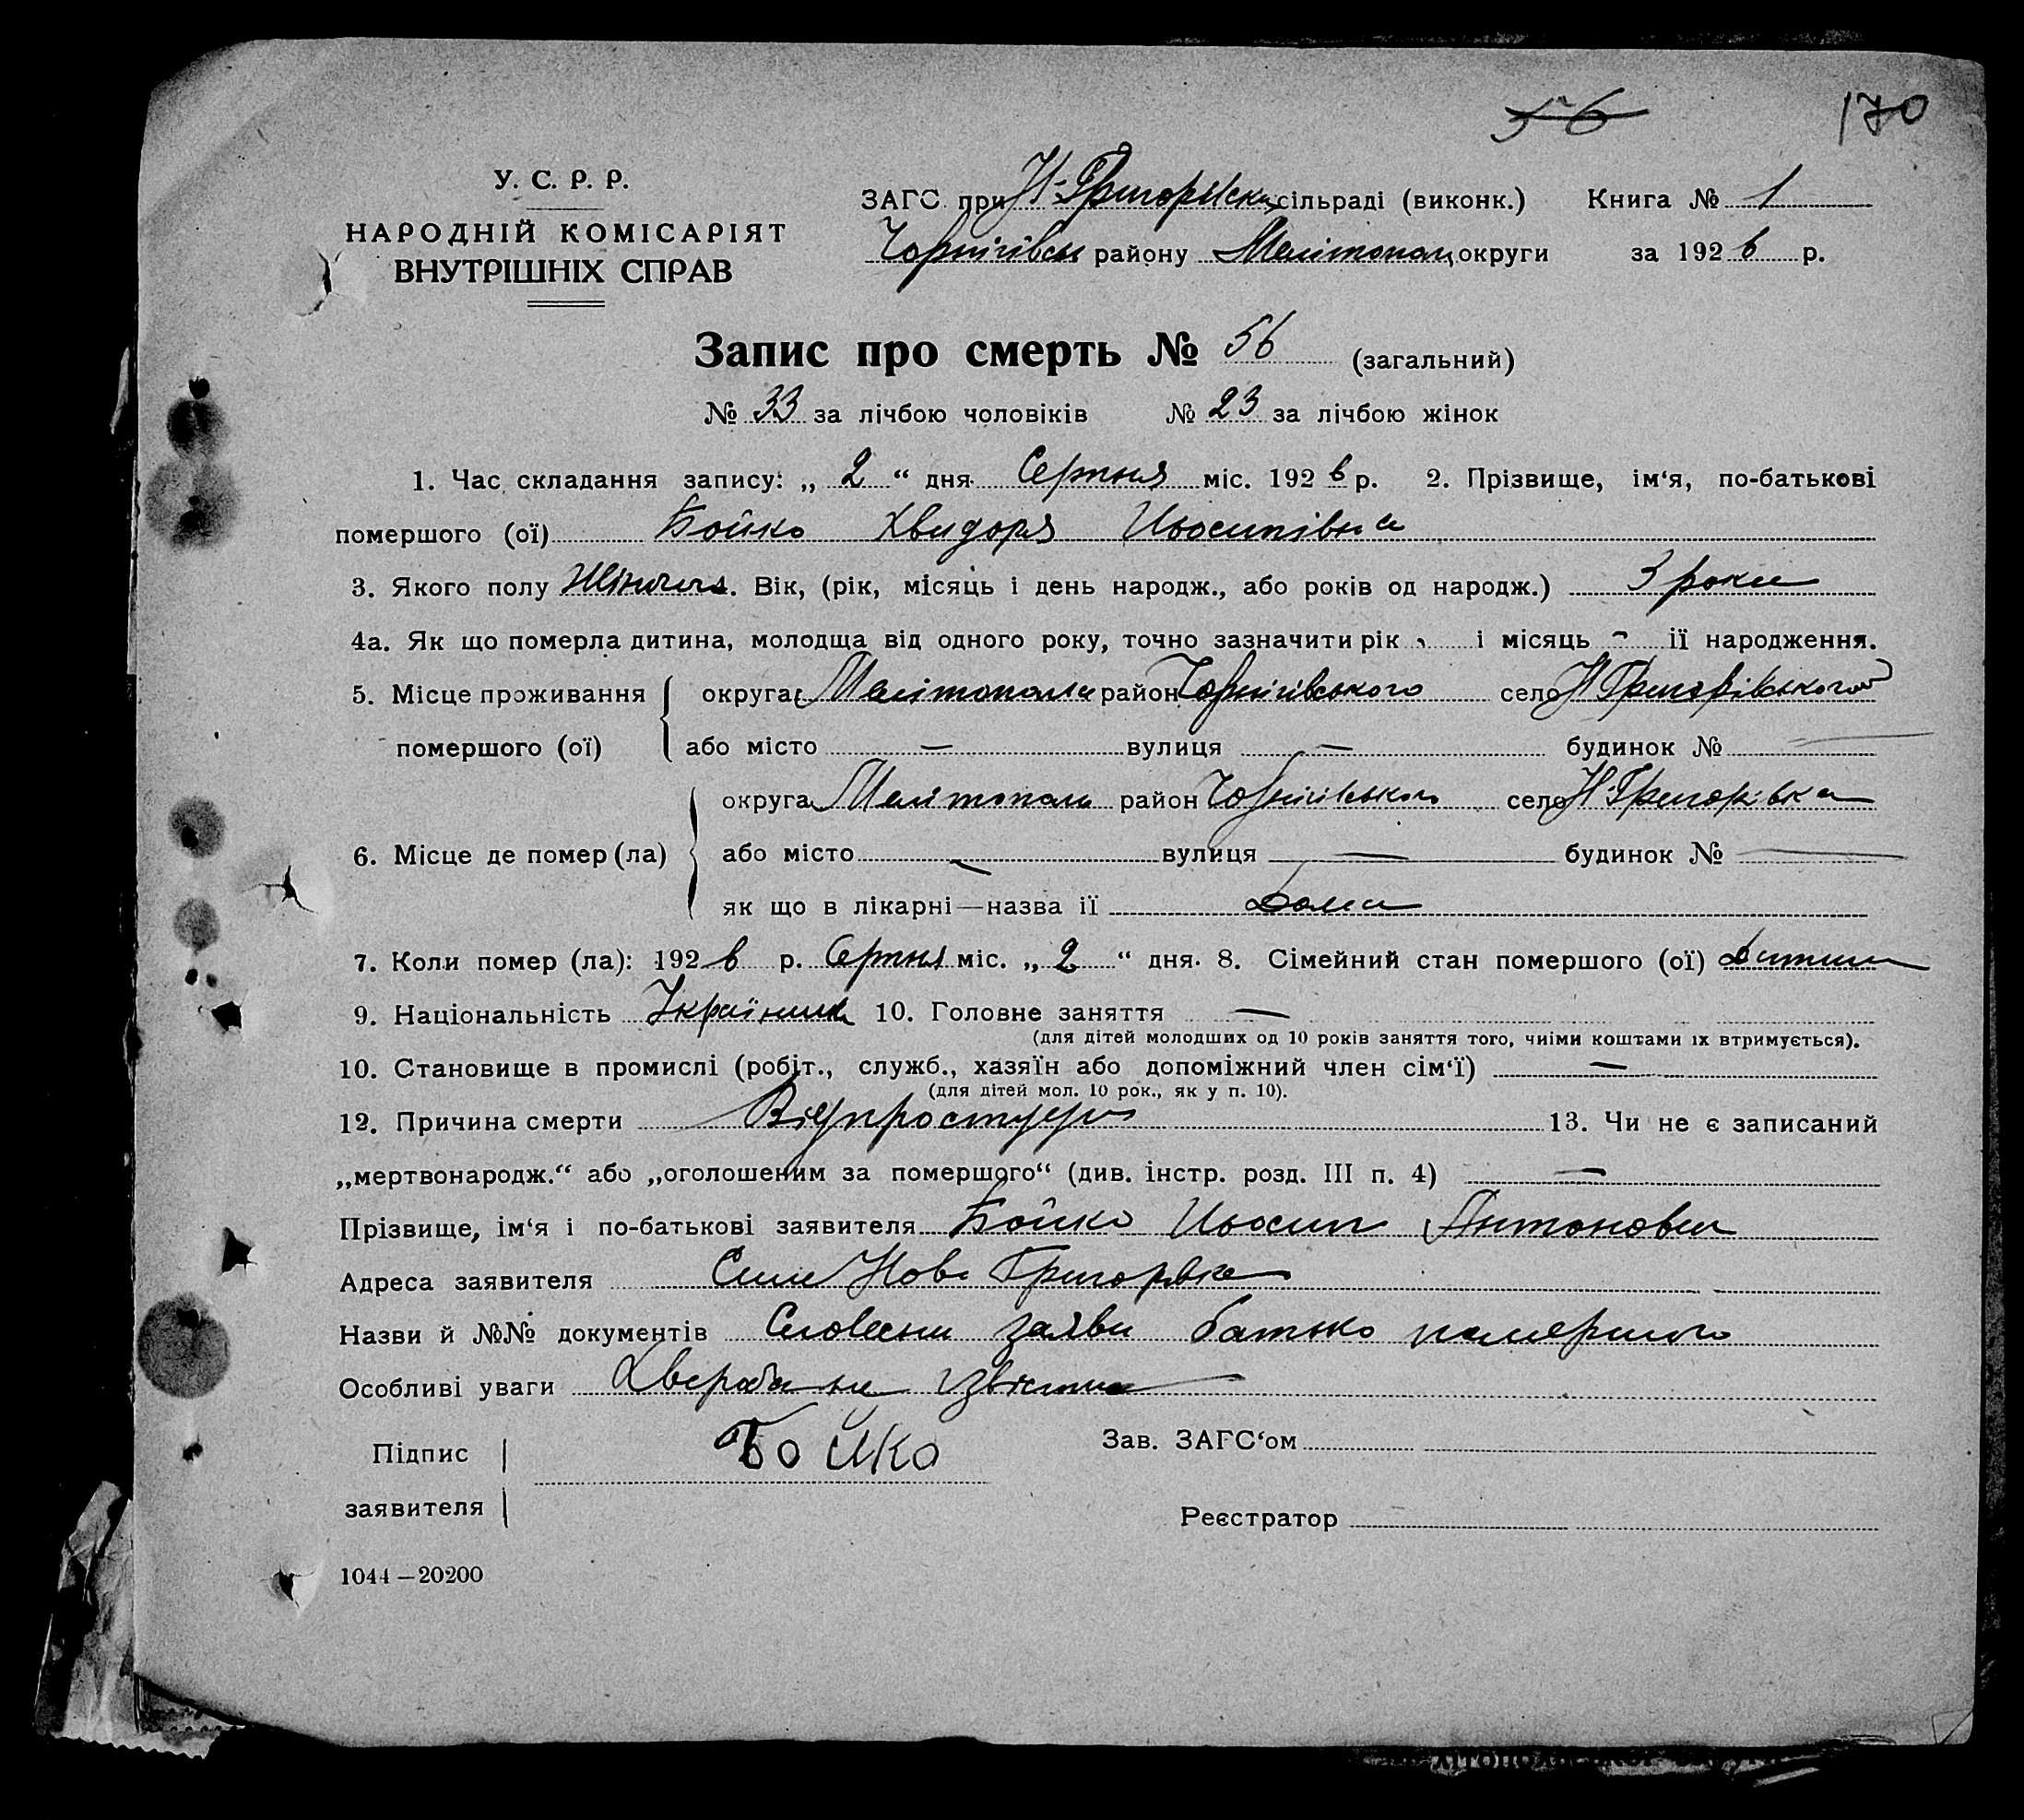 56 170
У. С. Р. Р.
НАРОДНІЙ КОМІСАРІЯТ
ВНУТРІШНІХ СПРАВ
ЗАГС при Н-Григорівск. сільраді (виконк.) Книга № 1
Чорнігівськ району Мелітопол. округи за 1926 р.
Запис про смерть № 56 (загальний)
№ 33 за лічбою чоловіків № 23 за лічбою жінок
1. Час складання запису: „ 2 “ дня Серпня міс. 1926 р. 2. Прізвище, ім‘я, по-батькові
помершого (ої) Бойко Хвидоря Иьосипівна
3. Якого полу Жіночого. Вік, (рік, місяць і день народж., або років од народж.) 3 роки
4а. Як що померла дитина, молодща від одного року, точно зазначити рік - і місяць - її народження.
5. Місце проживання округа Мелітополь район Чорнігівського село Н Григорівського
помершого (ої) або місто — вулиця — будинок № —
округа Мелітополь район Чорнігівського село Н Григорівка
6. Місце де помер (ла) або місто — вулиця — будинок № —
як що в лікарні—назва її Дома
7. Коли помер (ла): 1926 р. Серпня міс. „ 2 “ дня. 8. Сімейний стан помершого (ої) Дитина
9. Національність Українка 10. Головне заняття —
(для дітей молодших од 10 років заняття того, чиїми коштами їх втримується).
10. Становище в промислі (робіт., служб., хазяїн або допоміжний член сім‘ї) —
(для дітей мол. 10 рок., як у п. 10).
12. Причина смерти Відпростуди 13. Чи не є записаний
„мертвонародж.“ або „оголошеним за померщого“ (див. інстр. розд. III п. 4) —
Прізвище, ім‘я і по-батькові заявителя Бойко Иьосип Антонови
Адреса заявителя Село Ново Григорівка
Назви й №№ документів Словесни заяви батько помершого
Особливі уваги
Підпис
заявителя
Бойко
Зав. ЗАГС‘ом
Реєстратор
1044—20200